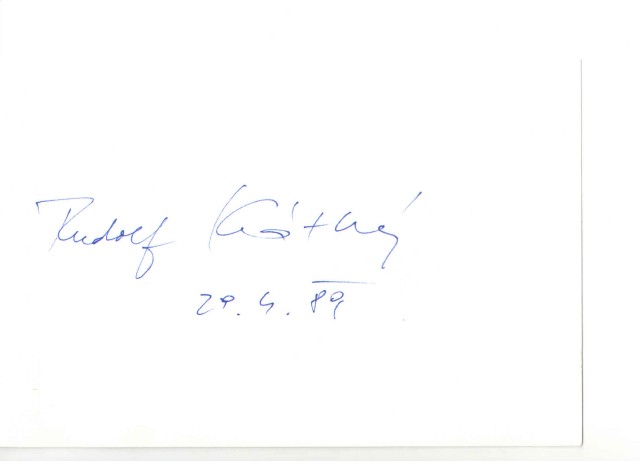 Rudolf Krátký
29. 4. 89